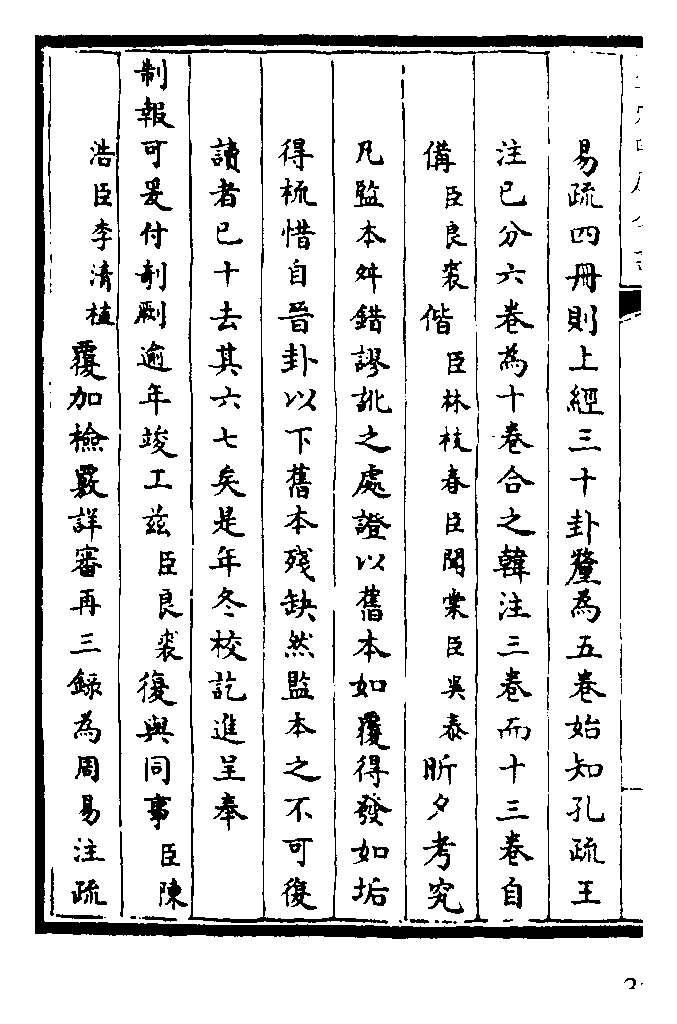 易疏四冊則上經三十卦釐為五卷始知孔疏王
注已分六卷為十卷合之韓注三卷而十三卷自
備臣良裘偕臣林枝春臣聞棠臣吳泰昕夕考究
凡監本舛錯謬訛之處證以舊本如覆得發如垢
得梳惜自晉卦以下舊本殘缺然監本之不可復
讀者已十去其六七矣是年冬校訖進呈奉
制報可爰付剞劂逾年竣工茲臣良裘復與同事臣陳
浩臣李清植覆加檢覈詳審再三錄為周易注疏